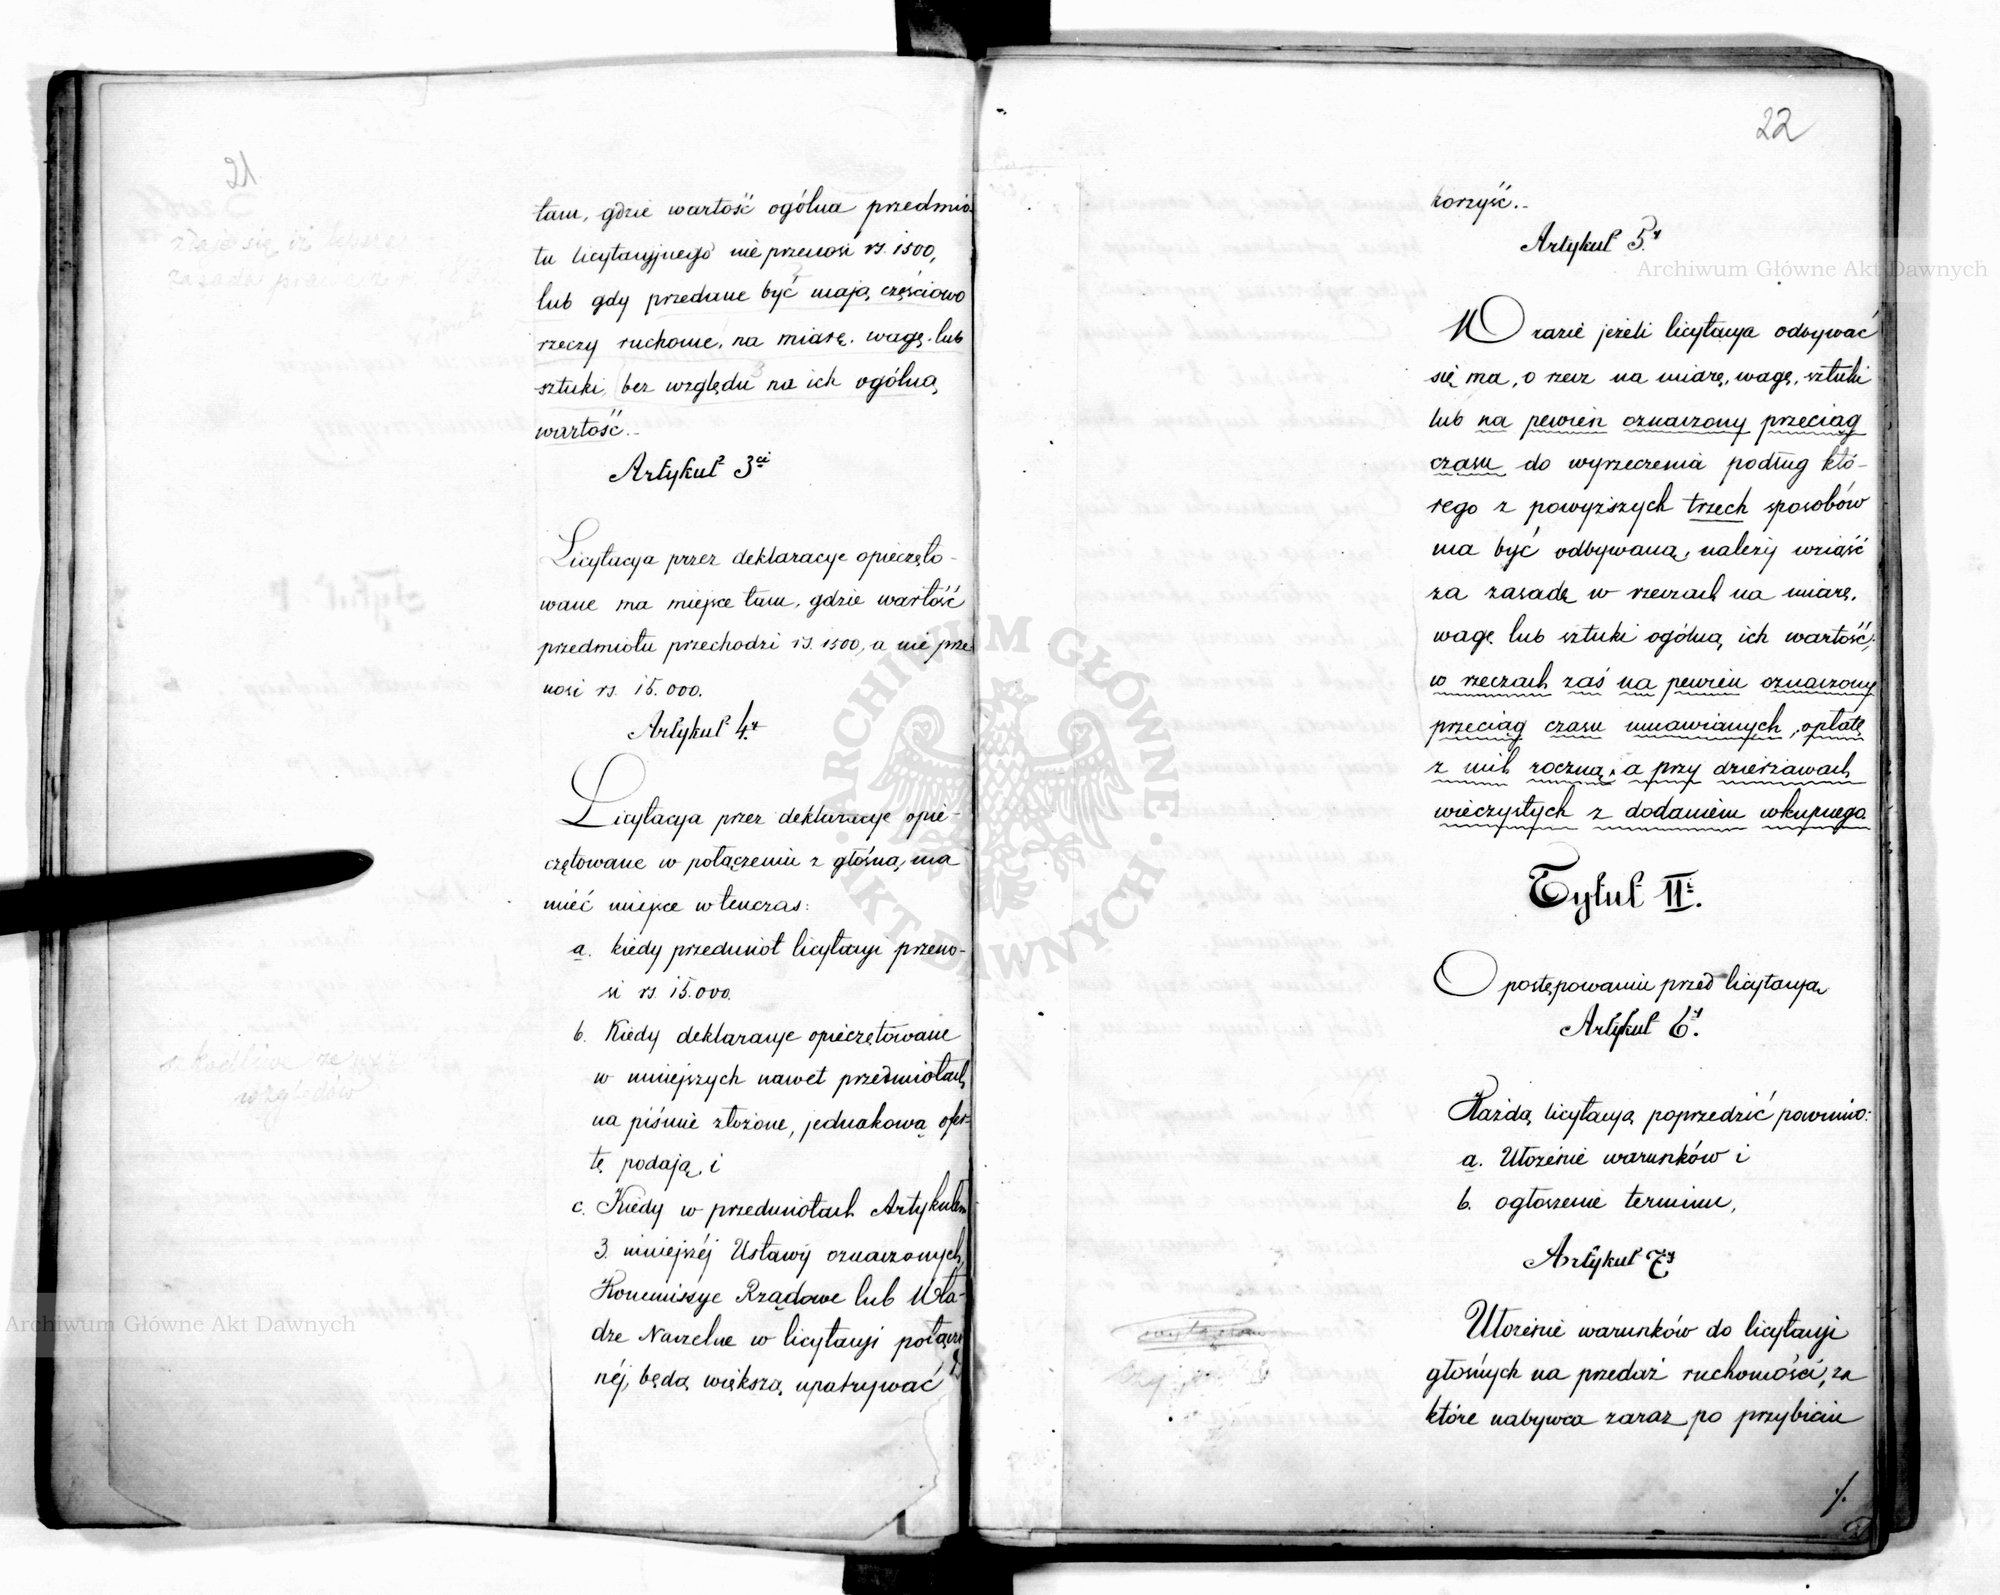 tam, gdzie wartość ogólna przedmio
tu licytacyjnego nie przenosi rs. 1500,
lub gdy przedane być mają częściowo
rzeczy ruchome, na miarę, wagę, lub
sztuki, bez względu na ich ogólną
wartość.-
Artykuł 3ci
Licytacya przez deklaracye opieczęto-
wane ma miejsce tam, gdzie wartość
przedmiotu przechodzi rs. 1500, a nie prze
nosi rs. 15.000.
Artykuł 4.y
Licytacya przez deklaracye opie-
czętowane w połączeniu z głośną, ma
mieć miejsce wtenczas:
a. kiedy przedmiot licytacyi przeno-
si rs. 15.000.
b. Kiedy deklaracye opieczętowane
w mniejszych nawet przedmiotach
na piśmie złożone, jednakową ofer-
tę podają, i
c. Kiedy w przedmiotach Artykułem
3. niniejszéj Ustawy oznaczonych,
Kommissye Rządowe lub Wła-
dze Naczelne w licytacyi połącze
néj, będą większą upatrywać
22
korzyść.-
Artykuł 5.y
W razie jeżeli licytacya odbywać
się ma, o rzecz na miarę, wagę, sztuki
lub na pewien oznaczony przeciąg
czasu do wyrzeczenia podług któ-
rego z powyższych trzech sposobów
ma być odbywaną, należy wziąść
za zasadę w rzeczach na miarę,
wagę lub sztuki ogólną ich wartość,
w rzeczach zaś na pewien oznaczony
przeciąg czasu umawianych, opłatę
z nich roczną, a przy dzierżawach
wieczystych z dodaniem wkupnego
Tytuł II.
O postępowaniu przed licytacyą
Artykuł 6.y
Każdą licytacyą poprzedzić powinno:
a. Ułożenie warunków i
b. ogłoszenie terminu,
Artykuł 7y
Ułożenie warunków do licytacyi
głośnych na przedaż ruchomości, za
które nabywca zaraz po przybiciu
./.
Archiwum Główne Akt Dawnych
Archiwum Główne Akt Dawnych
ARCHIWUM GŁÓWNE · AKT DAWNYCH ·